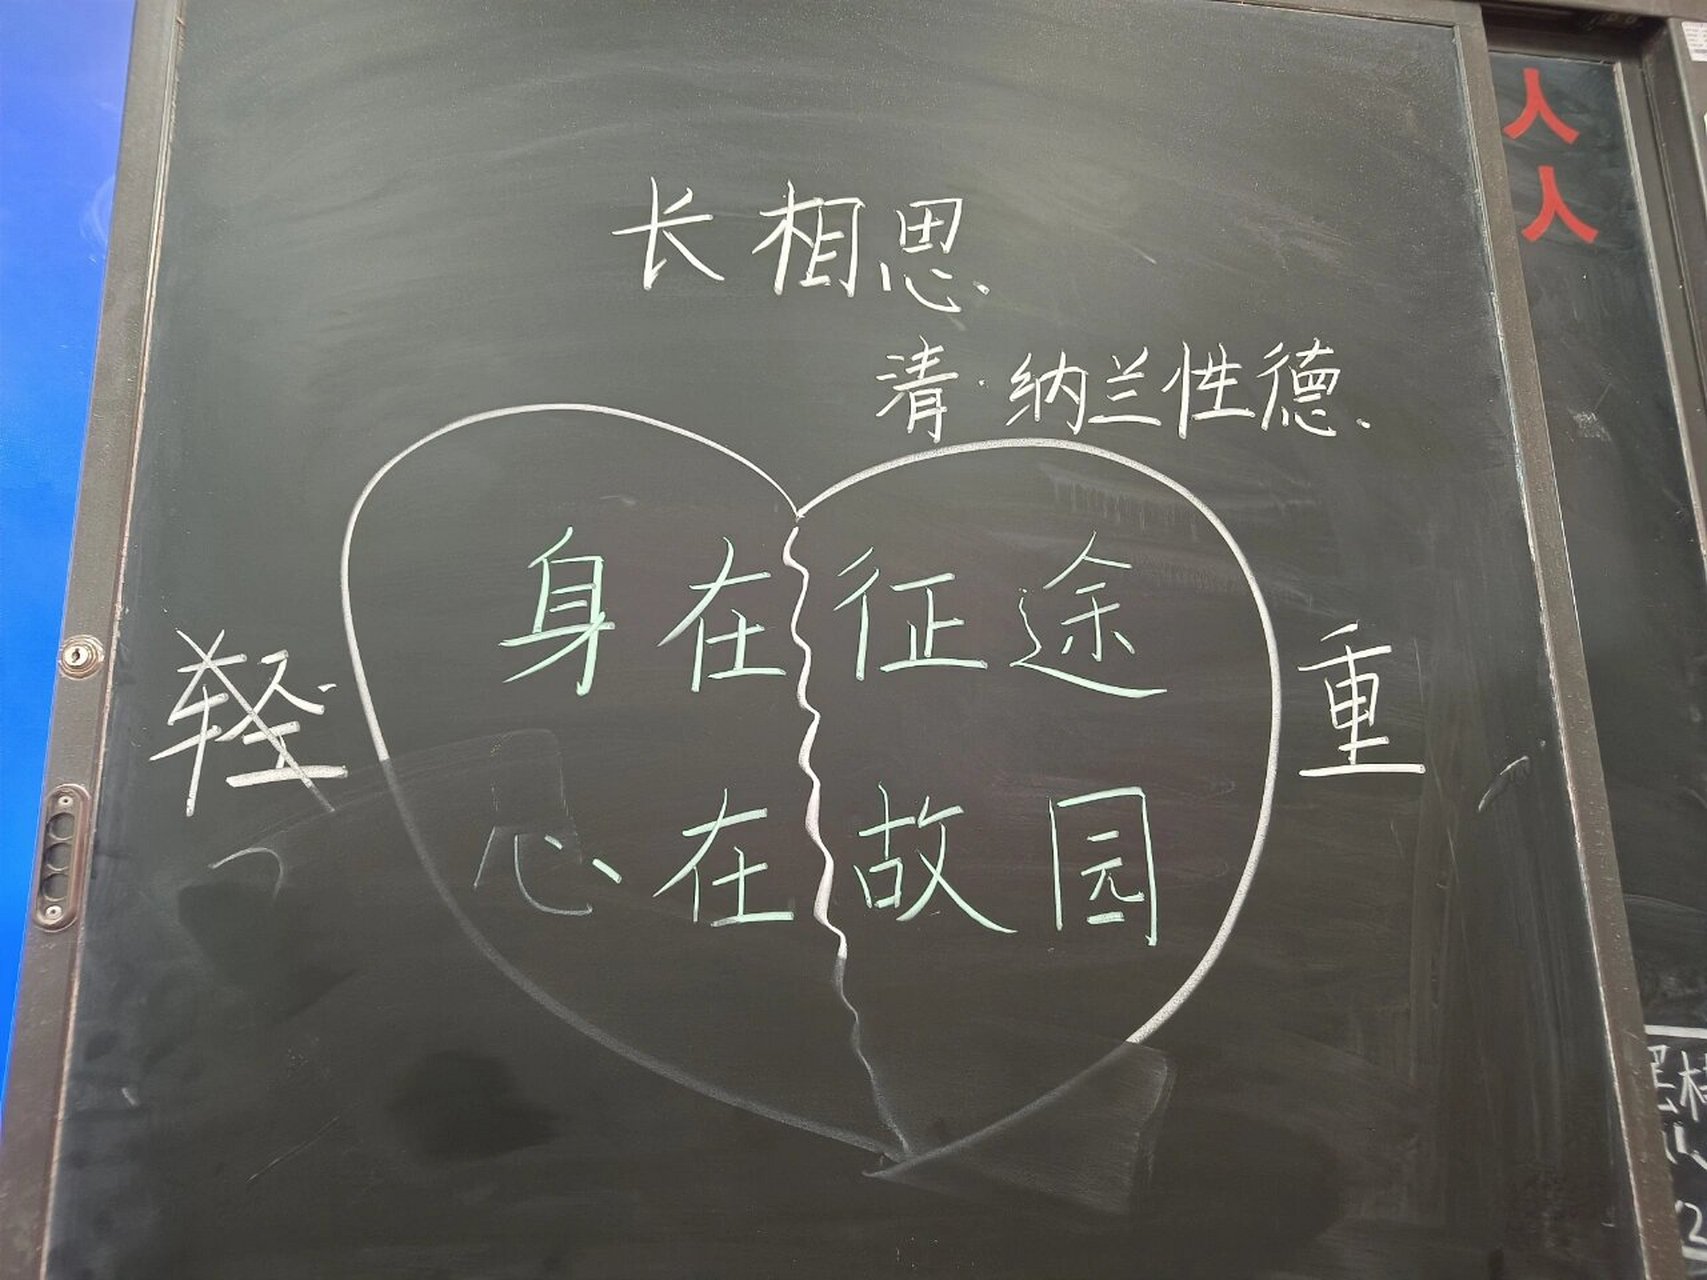 长相思
清·纳兰性德
身在征途
轻
重
心在故园
人
人